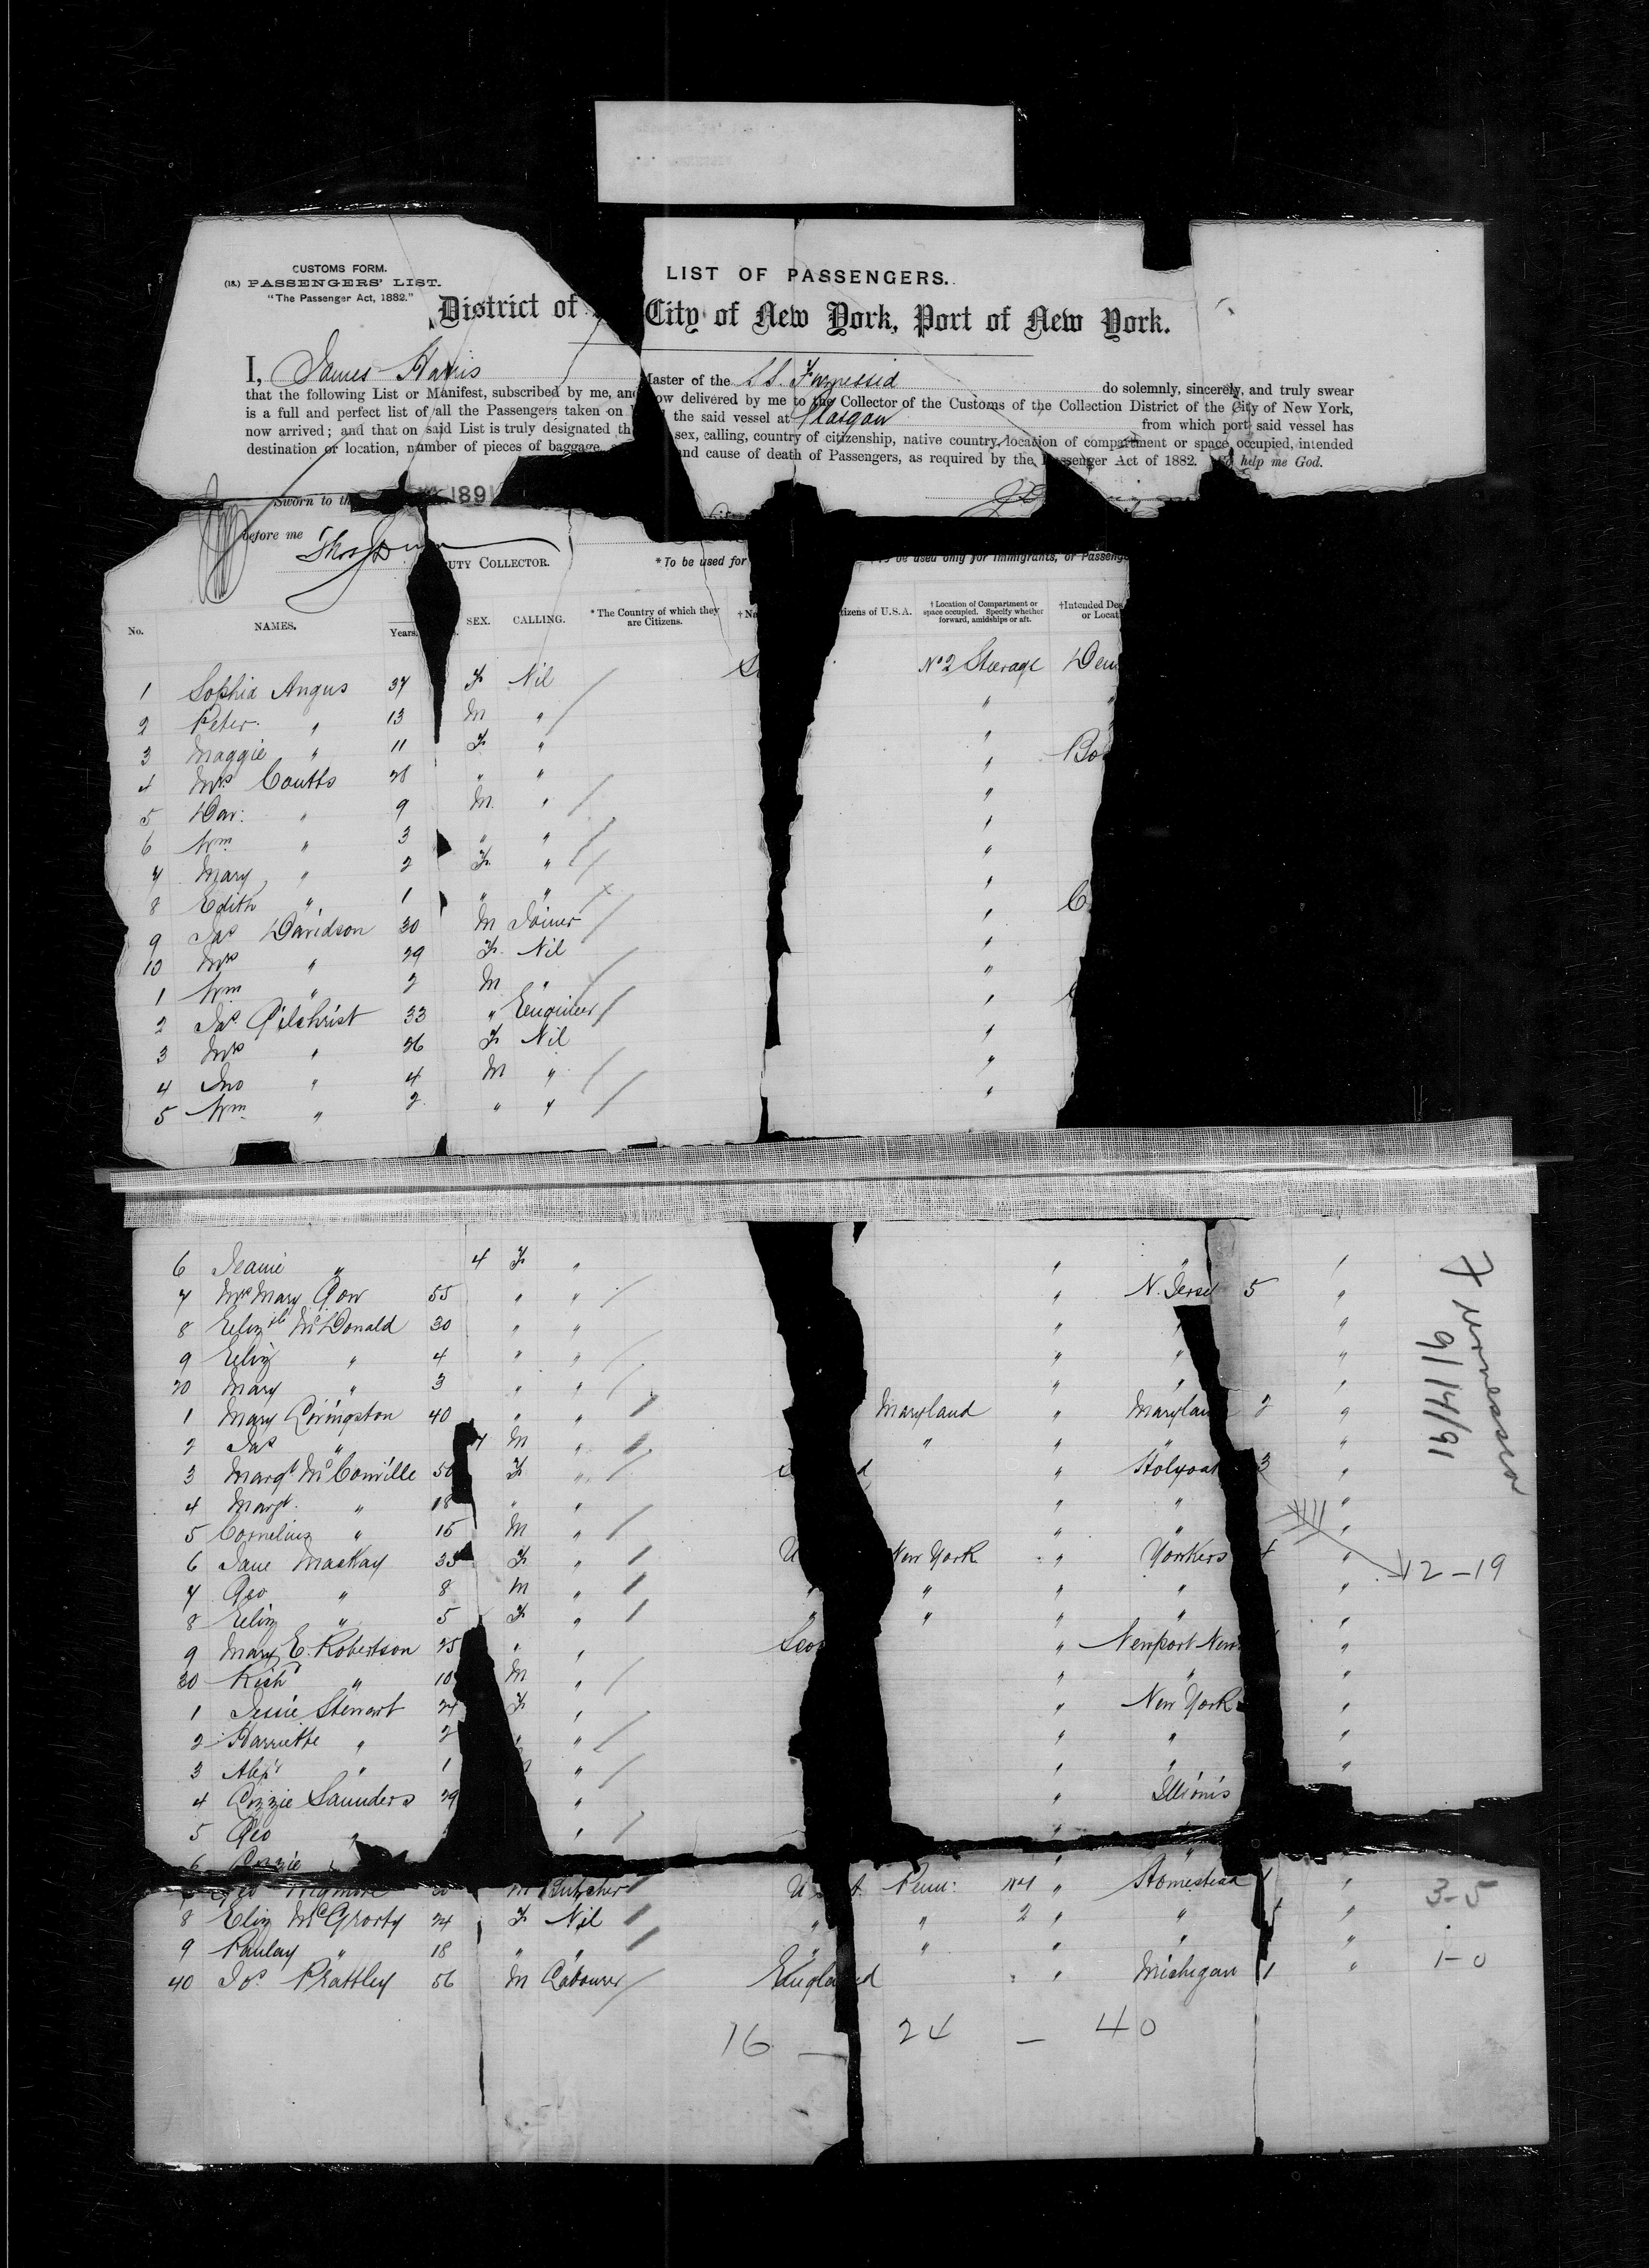 CUSTOMS FORM.
(18.) PASSENGERS' LIST.
"The Passenger Act, 1882."
LIST OF PASSENGERS.
District of City of New York, Port of New York.
I, James Harris Master of the S.S. Furnessia do solemnly, sincerely, and truly swear
that the following List or Manifest, subscribed by me, and now delivered by me to the Collector of the Customs of the Collection District of the City of New York,
is a full and perfect list of all the Passengers taken on the said vessel at Glasgow from which port said vessel has
now arrived; and that on said List is truly designated th sex, calling, country of citizenship, native country, location of compartment or space occupied, intended
destination or location, number of pieces of baggage, and cause of death of Passengers, as required by the Passenger Act of 1882. So help me God.
Sworn to th 1891
before me
UTY COLLECTOR.
* To be used for be used only for Immigrants, or Passeng
No. NAMES. Years. SEX. CALLING. * The Country of which they are Citizens. † Na tizens of U.S.A. † Location of Compartment or space occupied. Specify whether forward, amidships or aft. † Intended Des or Locat
1 Sophia Angus 37 F Nil No 2 Steerage Den
2 Peter " 13 M " "
3 Maggie " 11 F " "
4 Mrs Coutts 28 " " " Bo
5 Dav: " 9 M " "
6 Wm " 3 " " "
7 Mary " 2 F " "
8 Edith " 1 " " "
9 Jas Davidson 30 M Joiner " C
10 Mrs " 29 F Nil "
1 Wm " 2 M " "
2 Jas Gilchrist 33 " Engineer "
3 Mrs " 26 F Nil "
4 Jno " 4 M " "
5 Wm " 2 " " "
6 Jeanie " 4 F " " " "
7 Mrs Mary Gow 55 " " " N. Jerse 5 "
8 Elizth McDonald 30 " " " " "
9 Eliz " 4 " " " " "
20 Mary " 3 " " " " "
1 Mary Livingston 40 " " Maryland " Marylan 2 "
2 Jas " 4 M " " " " "
3 Margt McConville 50 F " " Holyoa 3 "
4 Margt " 18 " " " " "
5 Cornelius " 15 M " " " "
6 Jane MacKay 35 F " U New York " Yonkers 4 "
7 Geo " 8 M " " " " " "
8 Eliz " 5 F " " " " " "
9 Mary E. Robertson 25 " " Sco " Newport New "
30 Richd " 10 M " " " "
1 Jessie Stewart 24 F " " New York "
2 Harriette " 2 " " " " "
3 Alexr " 1 " " " "
4 Lizzie Saunders 29 " " Illionis
5 Geo " " "
6 Lizzie " "
Geo M Butcher U Penn: No 1 " Homestead 1 "
8 Eliz McGrorty 24 F Nil " " 2 " " "
9 " 18 " " " " " " "
40 Jos Prattley 56 M Labourer England " " Michigan 1 "
16 — 24 — 40
Furnessia
16/14/91
12-19
3-5
1-0